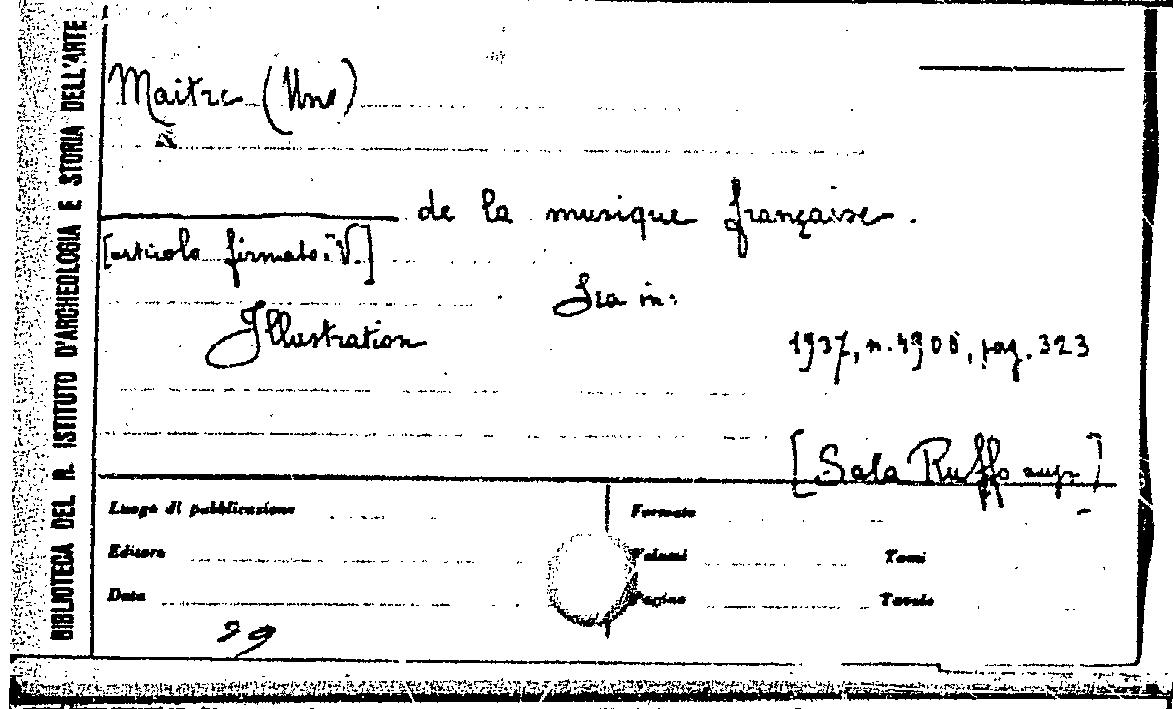 BIBLIOTECA DEL R. ISTITUTO D'ARCHEOLOGIA E STORIA DELL'ARTE
Maitre (Une)
de la musique française.
[articolo firmato: V.]
Sta in:
Illustration
1937, n. 4900, pag. 323
[Sala Ruffo]
Luogo di pubblicazione
Formato
Editore
Volumi
Tomi
Data
Pagine
Tavole